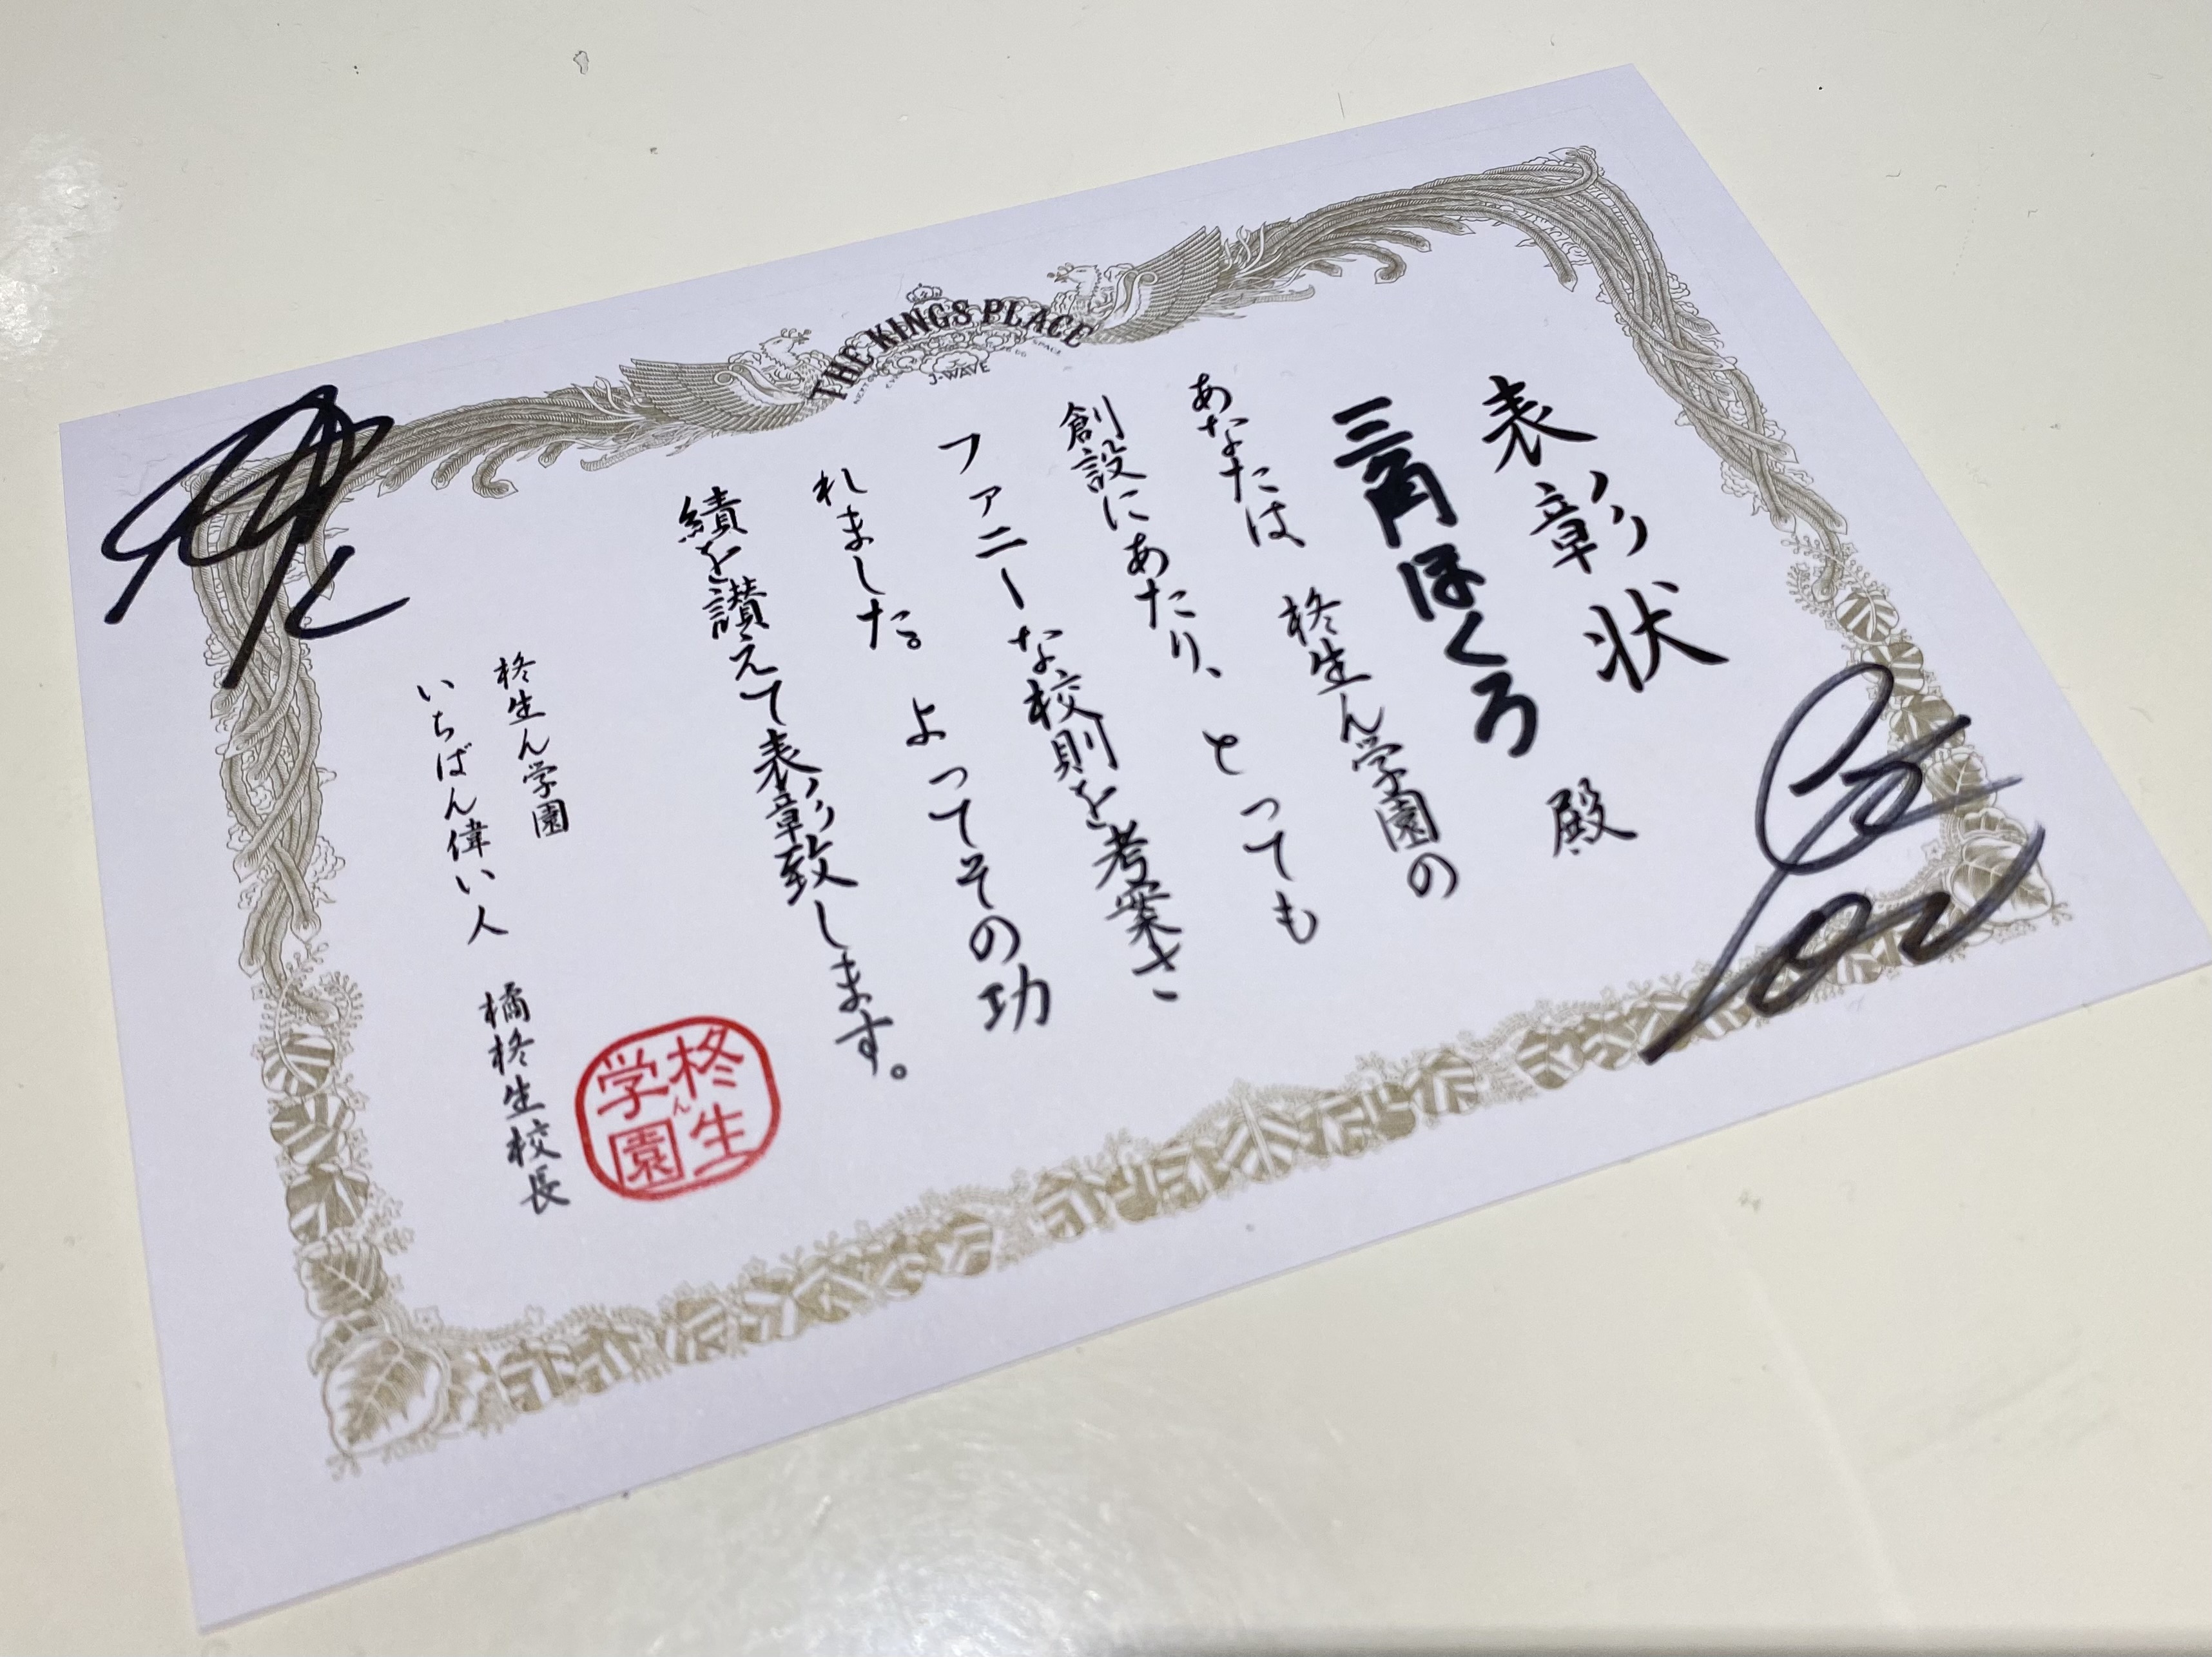 THE KINGS PLACE
J-WAVE
表彰状
三角ほくろ 殿
あなたは 柊生ん学園の
創設にあたり、とっても
ファニーな校則を考案さ
れました。よってその功
績を讃えて表彰致します。
柊生ん学園
いちばん偉い人 橘柊生校長
柊生ん学園